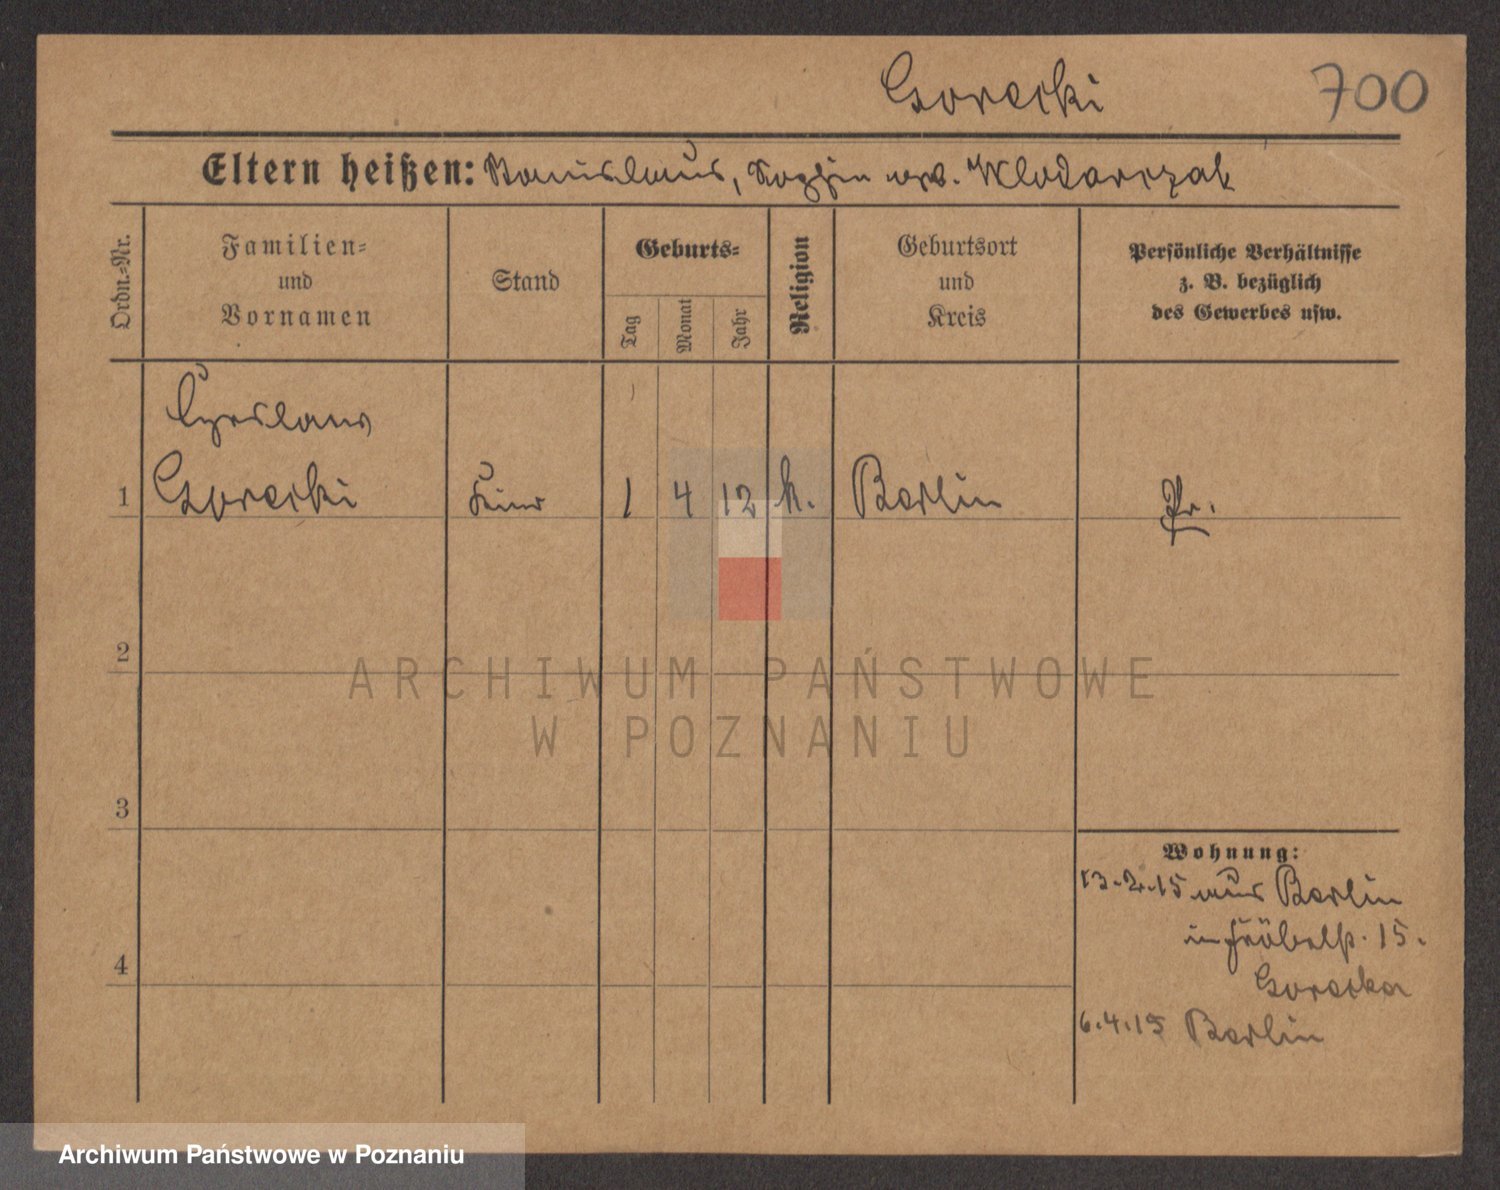 Gorecki 700
Eltern heißen: Stanislaus, Sophia geb. Wlodarczak
Ordn.=Nr.
Familien=
und
Vornamen
Stand
Geburts=
Tag
Monat
Jahr
Religion
Geburtsort
und
Kreis
Persönliche Verhältnisse
z. B. bezüglich
des Gewerbes usw.
Czeslaus
1 Gorecki Kind 1 4 12 k. Berlin Pr.
2
3
4
Wohnung:
13.2.15 aus Berlin
in Fröbelstr. 15.
Gorecka
6.4.15 Berlin
ARCHIWUM PAŃSTWOWE
W POZNANIU
Archiwum Państwowe w Poznaniu